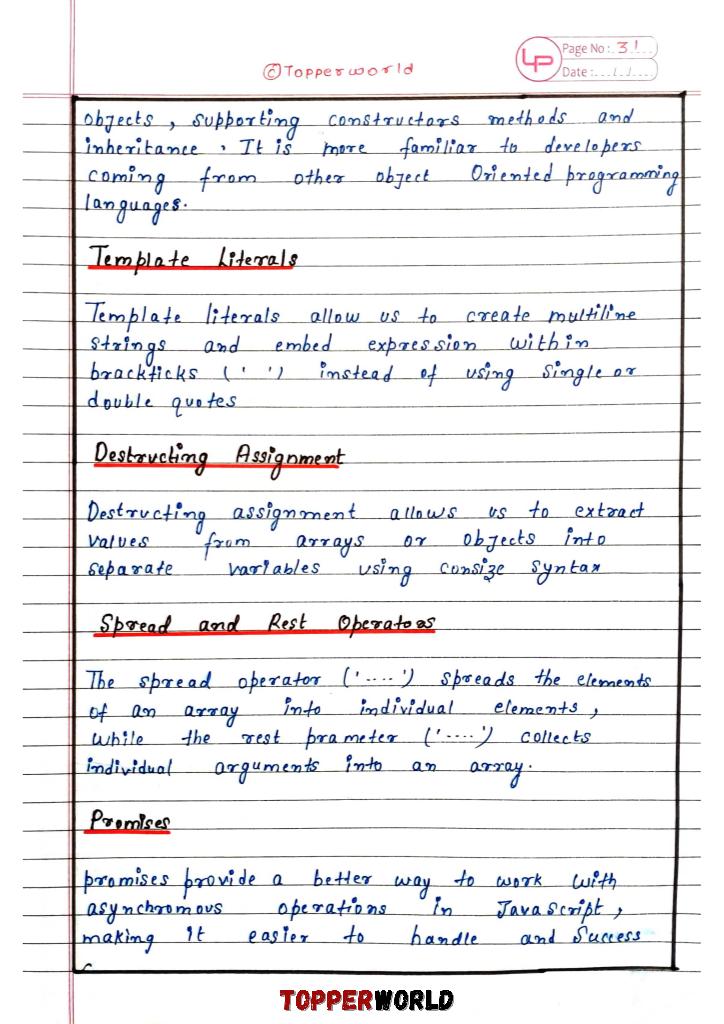 ©Topperworld
Page No: 31
Date:
objects, supporting constructors methods and
inheritance. It is more familiar to developers
coming from other object Oriented programming
languages.
Template Literals
Template literals allow us to create multiline
strings and embed expression within
brackticks (' ') instead of using single or
double quotes
Destructing Assignment
Destructing assignment allows us to extract
values from arrays or objects into
separate variables using consize syntax
Spread and Rest Operators
The spread operator ('....') spreads the elements
of an array into individual elements,
while the rest prameter ('....') collects
individual arguments into an array.
Promises
promises provide a better way to work with
asynchromous operations in JavaScript,
making it easier to handle and success
TOPPERWORLD